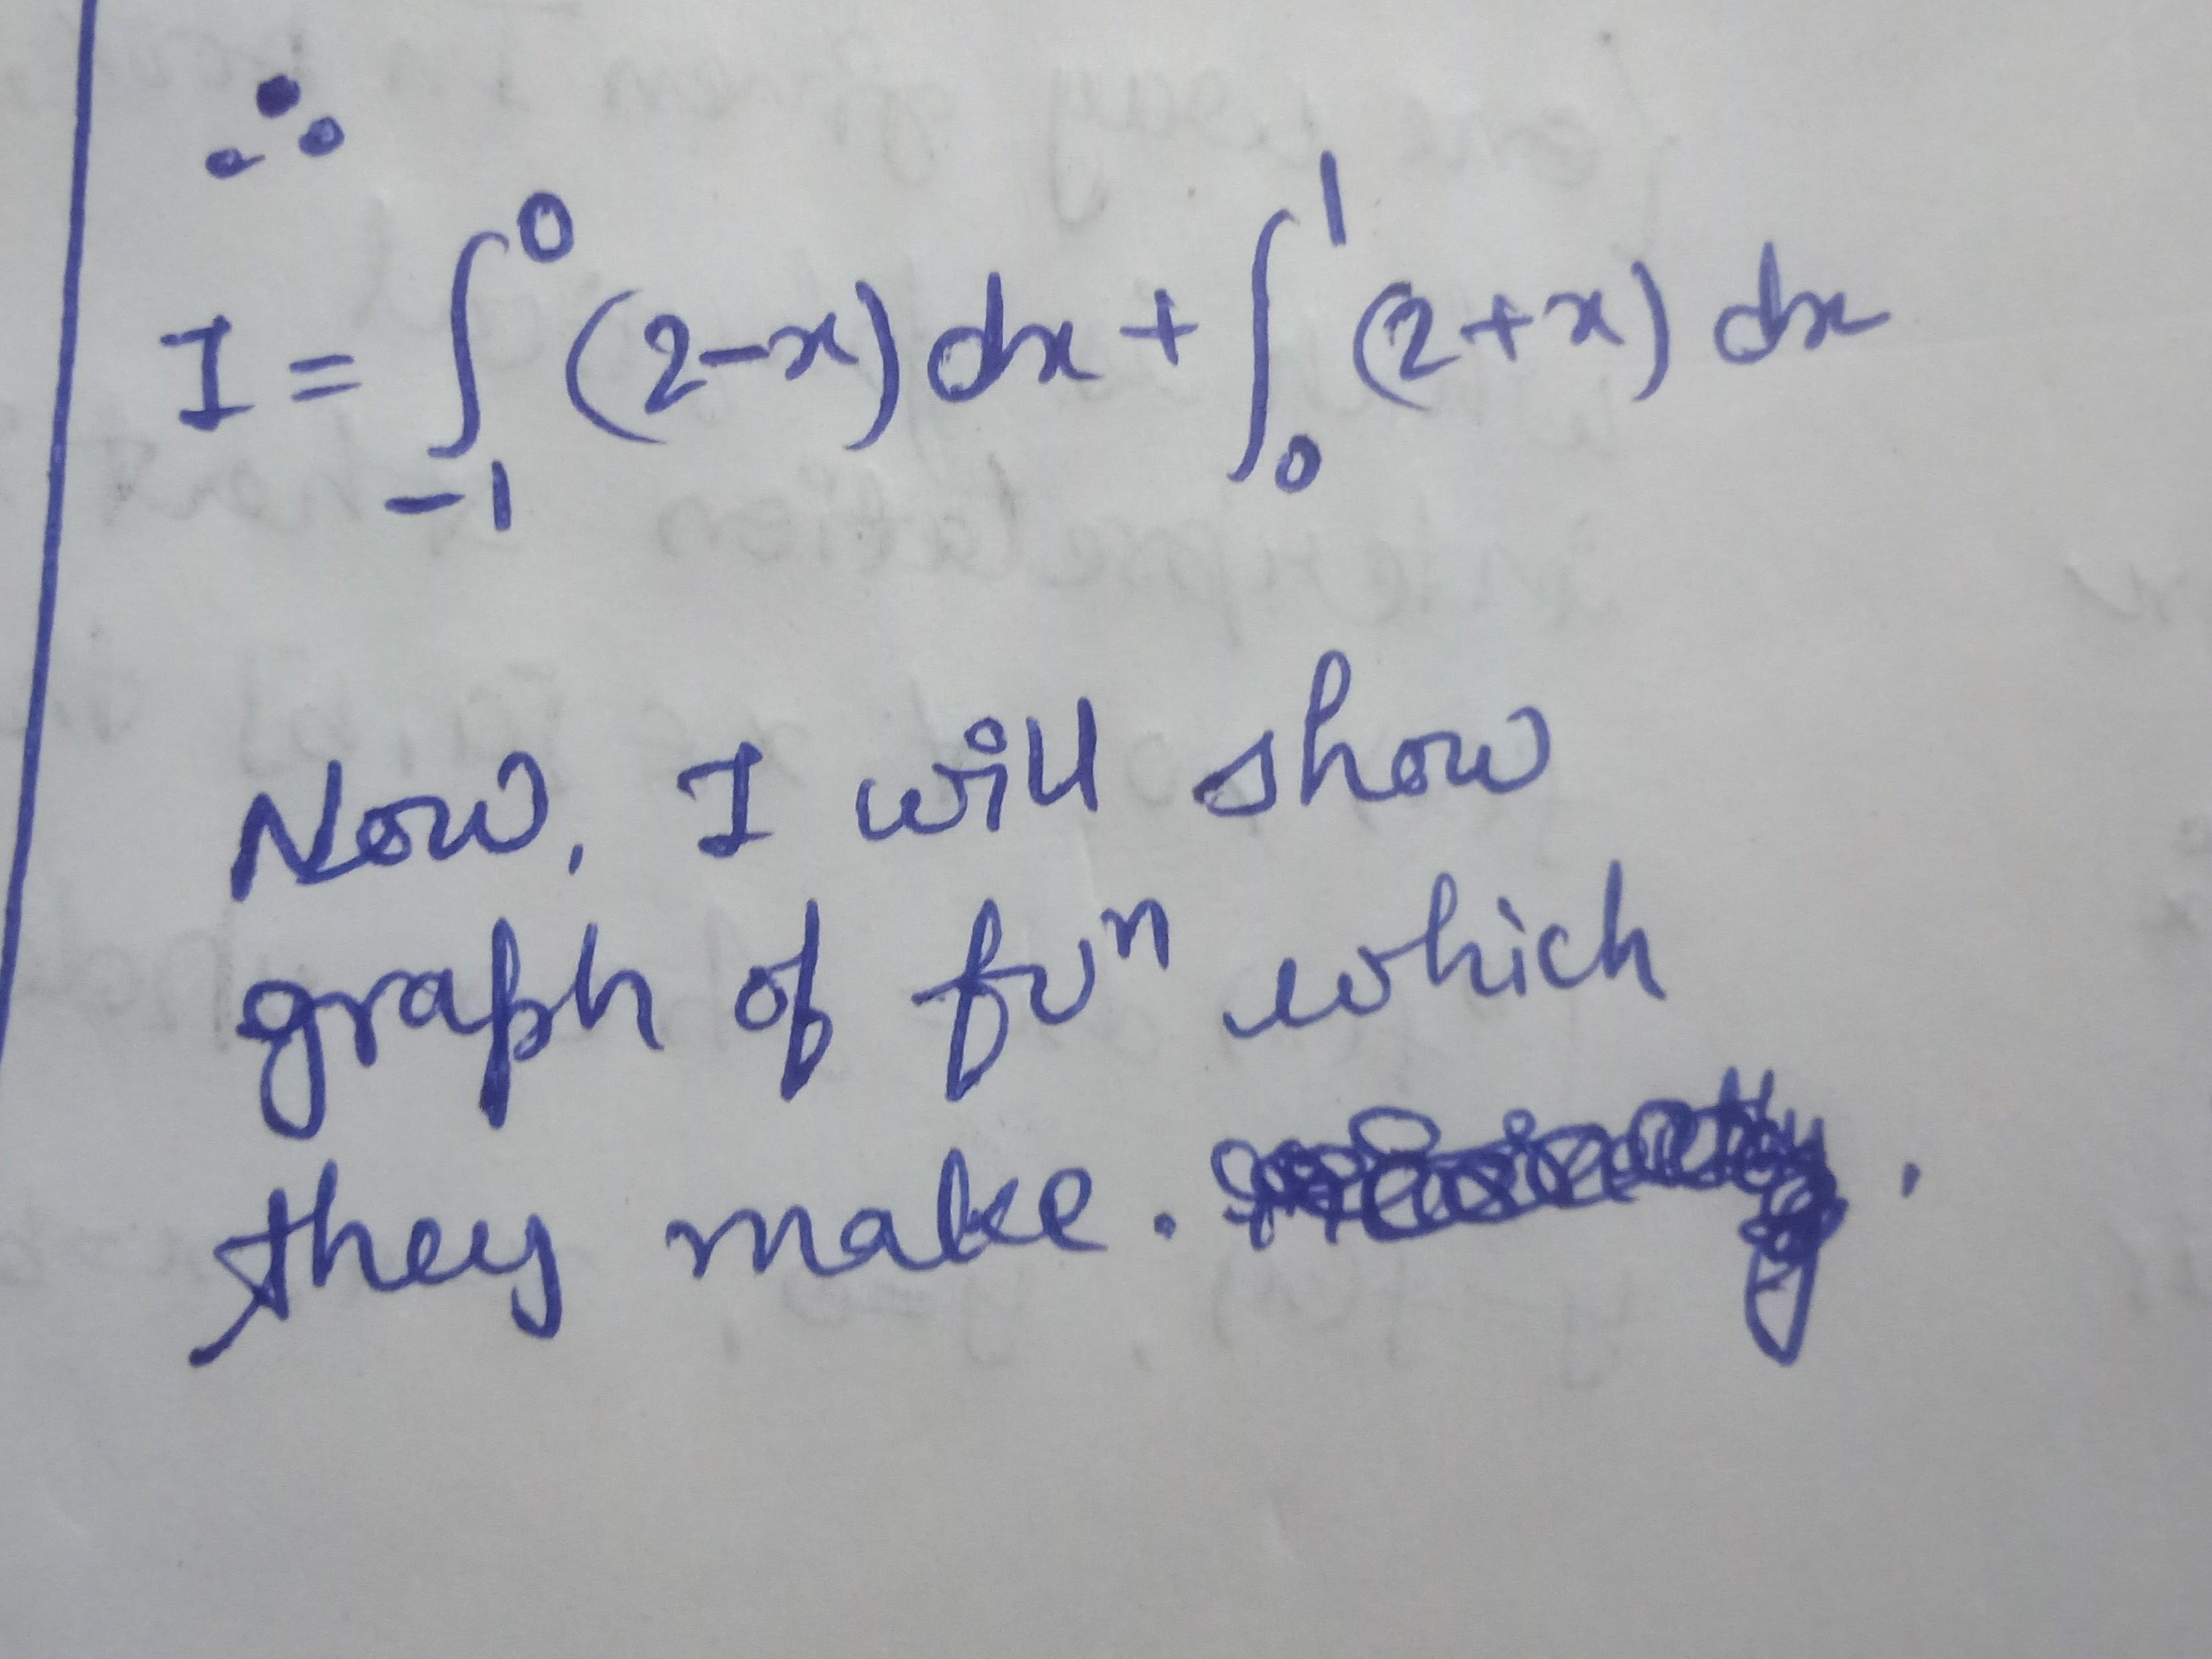 ∴
I = ∫₋₁⁰ (2-x) dx + ∫₀¹ (2+x) dx
Now, I will show
graph of fuⁿ which
they make.